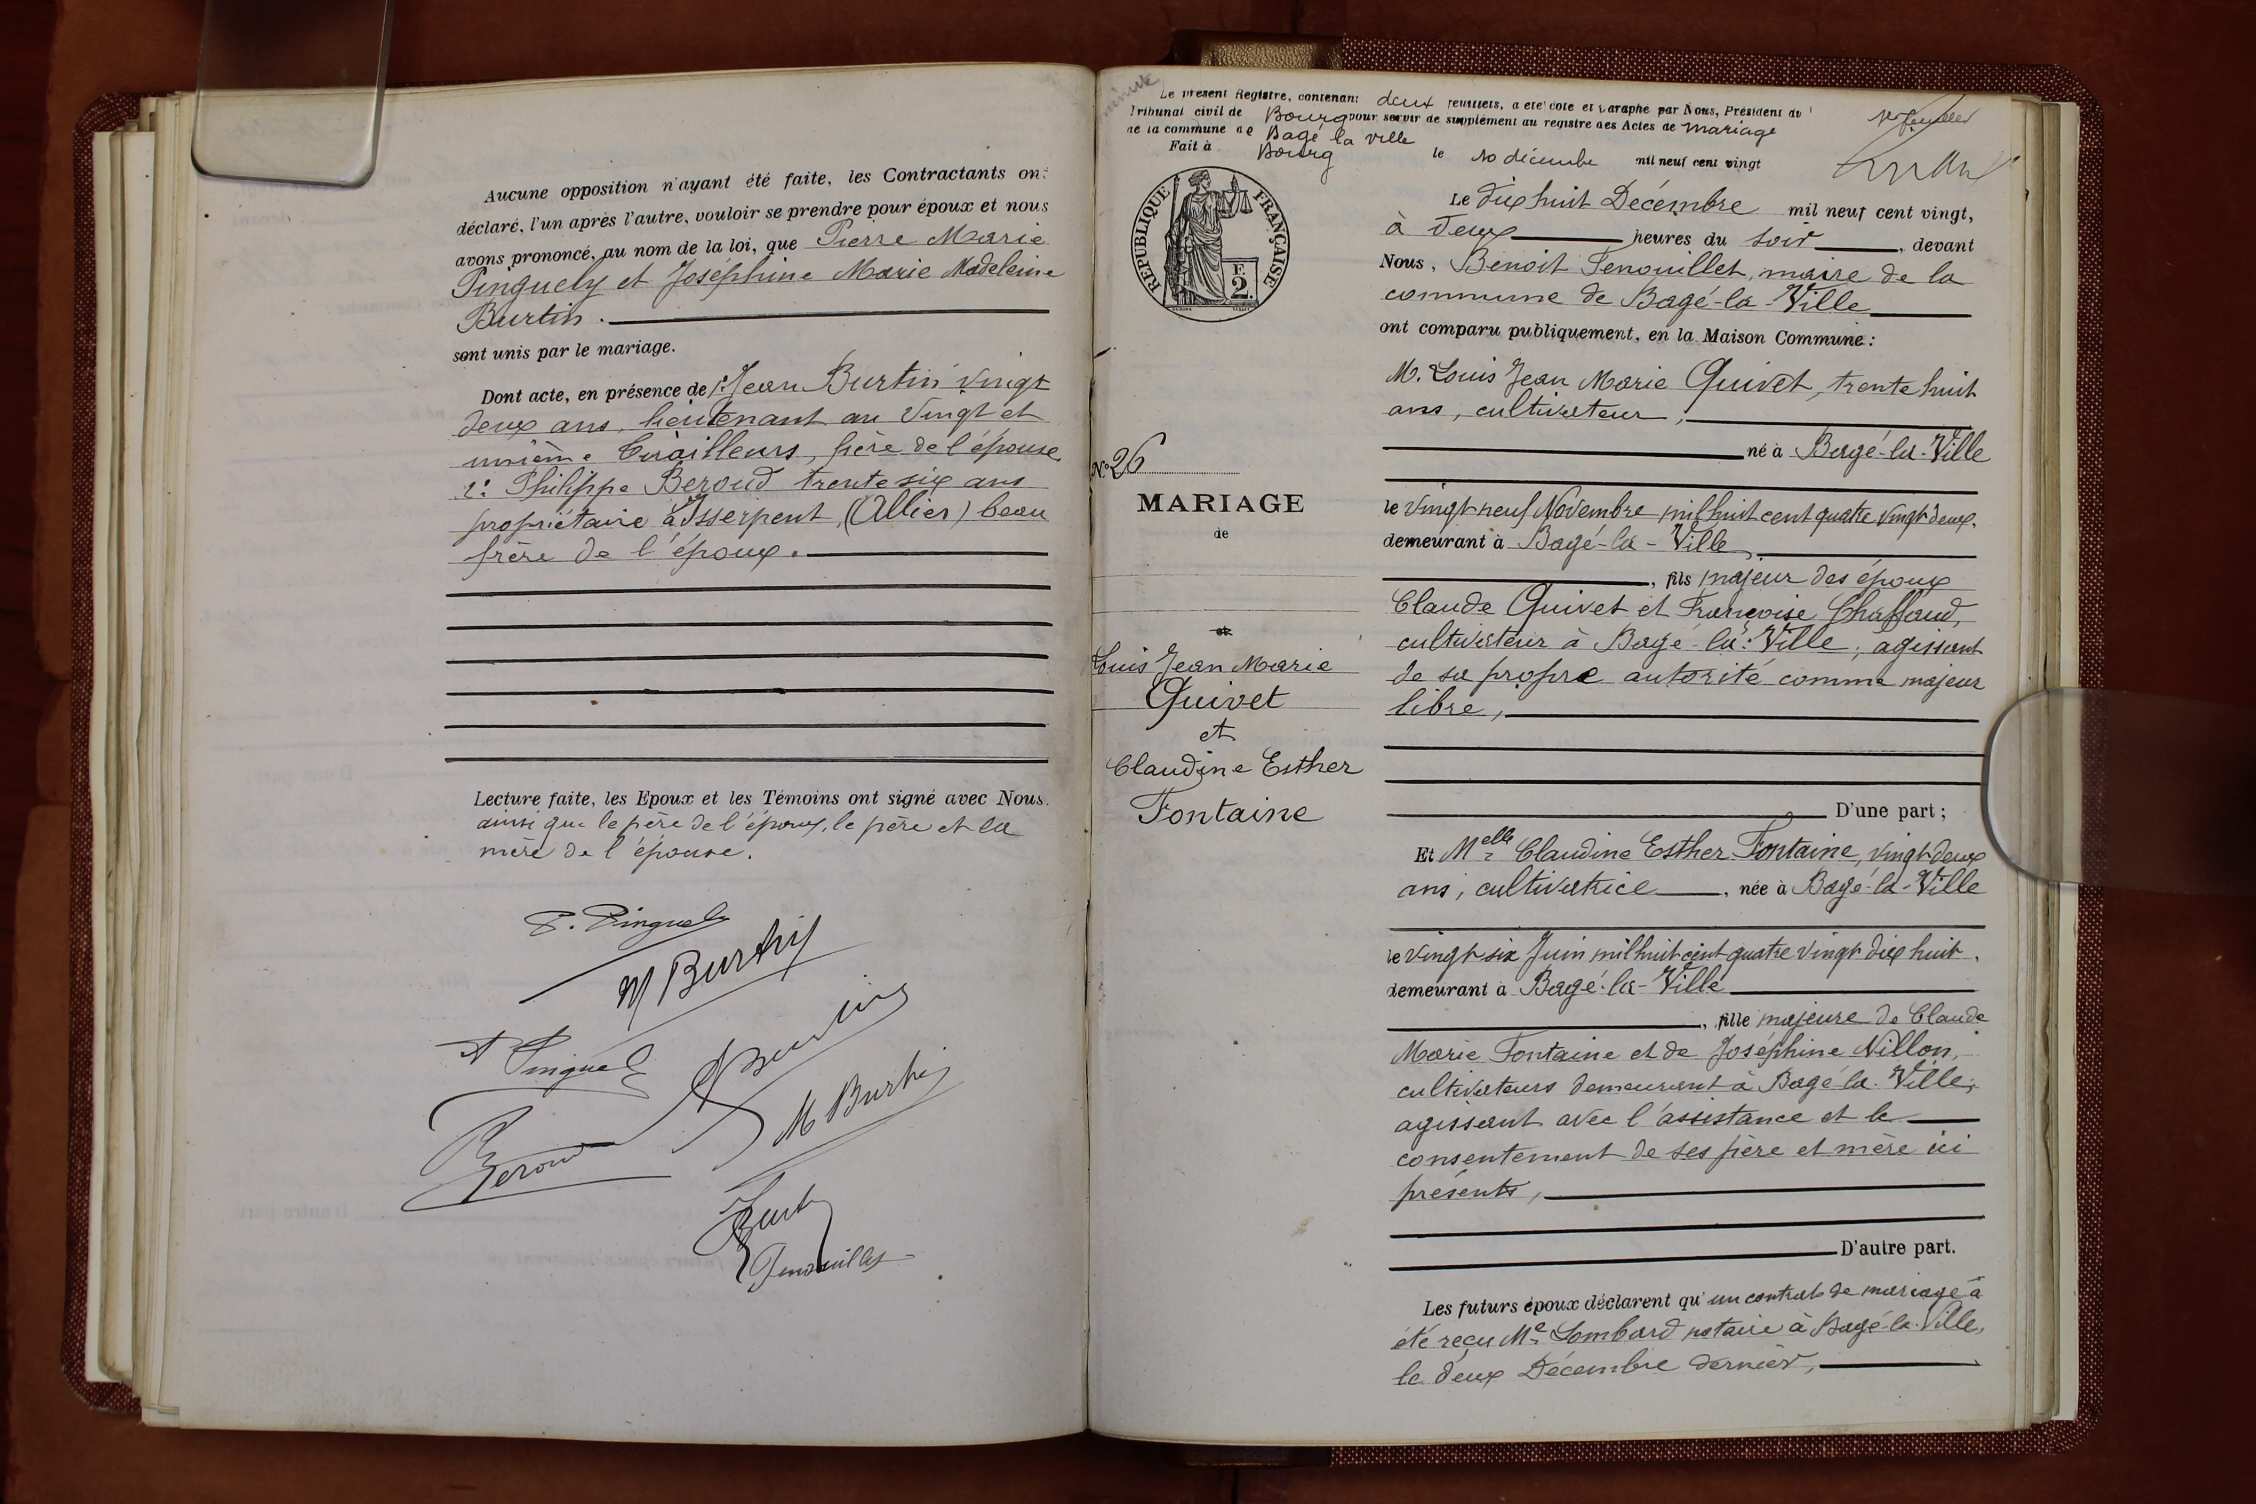 Aucune opposition n'ayant été faite, les Contractants ont
déclaré, l'un après l'autre, vouloir se prendre pour époux et nous
avons prononcé, au nom de la loi, que Pierre Marie
Pinguely et Joséphine Marie Madeleine
Burtin.
sont unis par le mariage.
Dont acte, en présence de 1° Jean Burtin vingt
deux ans, lieutenant au vingt et
unième Tirailleurs, frère de l'épouse
2° Philippe Beroud trente six ans
propriétaire à Isserpent, (Allier) beau
frère de l'époux.
Lecture faite, les Epoux et les Témoins ont signé avec Nous.
ainsi que le père de l'époux, le père et la
mère de l'épouse.
P. Pinguely
M Burtin
A Pinguely
Burtin
M Burtin
Beroud
Burtin
Fenouillet
Le présent Registre, contenant deux feuillets, a été coté et paraphé par Nous, Président du
Tribunal civil de Bourg pour servir de supplément au registre des Actes de mariage
de la commune de Bagé la ville
Fait à Bourg le 10 décembre mil neuf cent vingt
1er feuillet
REPUBLIQUE FRANÇAISE
F.
2.
N° 26
MARIAGE
de
et
Louis Jean Marie
Quivet
et
Claudine Esther
Fontaine
Le dix huit Décembre mil neuf cent vingt,
à deux heures du soir, devant
Nous, Benoit Fenouillet, maire de la
commune de Bagé-la-Ville
ont comparu publiquement, en la Maison Commune:
M. Louis Jean Marie Quivet, trente huit
ans, cultivateur,
né à Bagé-la-Ville
le vingt neuf Novembre mil huit cent quatre vingt deux.
demeurant à Bagé-la-Ville,
, fils majeur des époux
Claude Quivet et Françoise Chaffaud,
cultivateur à Bagé-la-Ville, agissant
de sa propre autorité comme majeur
libre,
D'une part;
Et Melle Claudine Esther Fontaine, vingt deux
ans, cultivatrice, née à Bagé-la-Ville
le vingt six Juin mil huit cent quatre vingt dix huit.
demeurant à Bagé-la-Ville
, fille majeure de Claude
Marie Fontaine et de Joséphine Nillon,
cultivateurs demeurant à Bagé la Ville,
agissant avec l'assistance et le
consentement de ses père et mère ici
présents,
D'autre part.
Les futurs époux déclarent qu'un contrat de mariage a
été reçu Me Lombard notaire à Bagé-la-Ville,
le deux Décembre dernier,